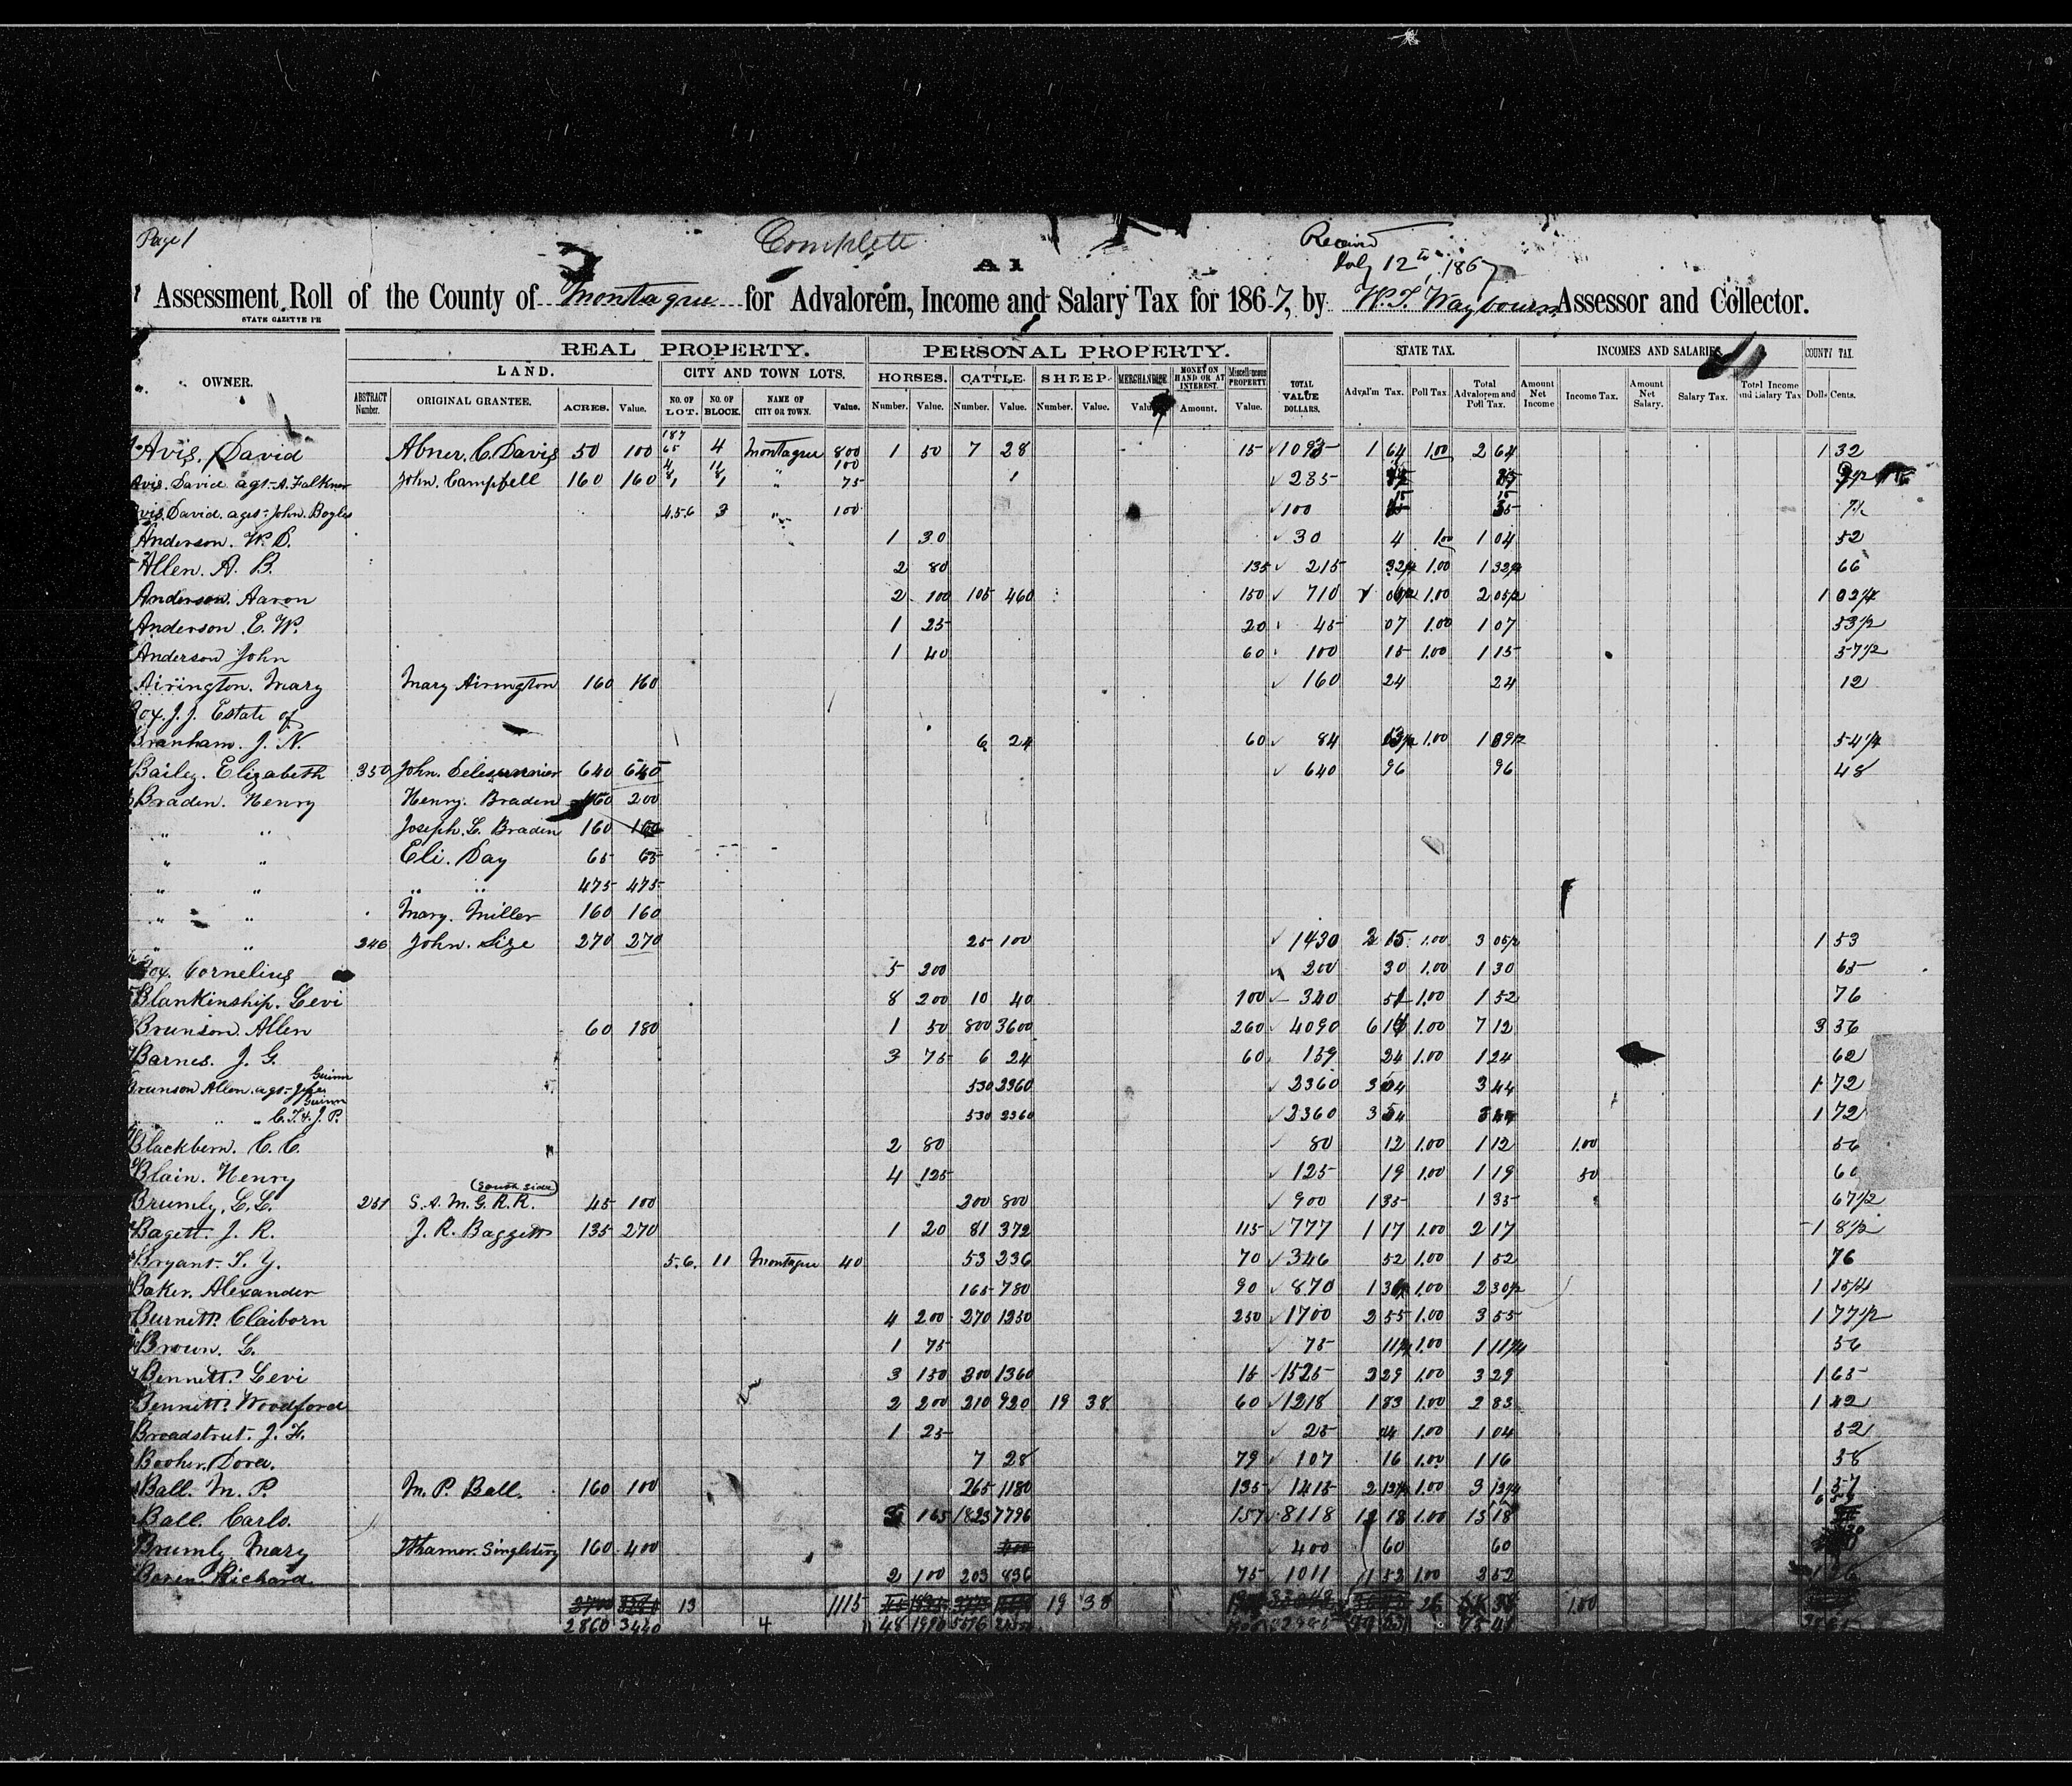 Page 1
Complete
Received
July 12th, 1867
A 1
Assessment Roll of the County of Montague for Advalorem, Income and Salary Tax for 1867, by W.T. Waybourn Assessor and Collector.
STATE GAZETTE PR
REAL PROPERTY. PERSONAL PROPERTY. STATE TAX. INCOMES AND SALARIES COUNTY TAX.
OWNER. LAND. CITY AND TOWN LOTS. HORSES. CATTLE. SHEEP. MERCHANDISE MONEY ON HAND OR AT INTEREST. Miscellaneous PROPERTY TOTAL VALUE DOLLARS.
ABSTRACT Number. ORIGINAL GRANTEE. ACRES. Value. NO. OF LOT. NO. OF BLOCK. NAME OF CITY OR TOWN. Value. Number. Value. Number. Value. Number. Value. Value. Amount. Value. Adval'm Tax. Poll Tax. Total Advalorem and Poll Tax. Amount Net Income Income Tax. Amount Net Salary. Salary Tax. Total Income and Salary Tax Dolls Cents.
Avis, David Abner. C. Davis 50 100 187 65 4 Montague 800 1 50 7 28 15 1 64 1.00 2 64 1 32
Avis. David agt. A. Falkner John. Campbell 160 160 100 75 285
Avis, David. agt. John. Boyles 4.5.6 3 " 100 100
Anderson. W. S. 1 30 30 4 1.00 1 04 52
Allen. A. B. 2 80 135 215 32 1/2 1.00 1 32 1/2 66
Anderson. Aaron 2 100 105 460 150 710 1.00 2 05 1/2 1 02 3/4
Anderson. E. W. 1 25 20 45 07 1.00 1 07 53 1/2
Anderson John 1 40 60 100 15 1.00 1 15 57 1/2
Airington. Mary Mary Airington 160 160 160 24 24 12
Box. J. J. Estate of
Branham. J. N. 6 24 60 84 1.00 54 1/4
Bailey. Elizabeth 350 John. 640 640 640 96 96 48
Braden. Henry Henry. Braden 160 200
" " Joseph. L. Braden 160 160
" " Eli. Day 65 65
" " " " 475 475
" " Mary. Miller 160 160
" " 246 John. Size 270 270 25 100 1430 2 15 1.00 3 05 1/2 1 53
Box. Cornelius 5 200 200 30 1.00 1 30 65
Blankinship. Levi 8 200 10 40 100 340 1.00 1 52 76
Brunson. Allen 60 180 1 50 800 3600 260 4090 1.00 7 12 3 36
Barnes. J. G. 3 75 6 24 60 159 24 1.00 1 24 62
Brunson Allen. agt. Guinn 530 2360 2360 3 44 1 72
" " " C. T. & J. P. Guinn 530 2360 2360 1 72
Blackbern. C. C. 2 80 80 12 1.00 1 12 1.00 56
Blain. Henry 4 125 125 19 1.00 1 19 50 60
Brumly, L. L. 251 S. A. M. G. R. R. (South side) 45 100 200 800 900 1 35 1 35 67 1/2
Bagett. J. R. J. R. Baggett 135 270 1 20 81 372 115 777 1 17 1.00 2 17 1 8 1/2
Bryant. T. Y. 5.6. 11 Montague 40 53 236 70 346 52 1.00 1 52 76
Baker, Alexander 165 780 90 870 1.00 2 30 1/2 1 15 1/4
Burnett. Claiborn 4 200 270 1250 250 1700 2 55 1.00 3 55 1 77 1/2
Brown. L. 1 75 75 11 1/4 1.00 1 11 1/4 56
Bennett. Levi 3 150 300 1360 15 1525 2 29 1.00 3 29 1 65
Bennett. Woodford 2 200 210 920 19 38 60 1218 1 83 1.00 2 83 1 42
Broadstrut. J. F. 1 25 25 1.00 1 04 52
Booher, Dora. 7 28 79 107 16 1.00 1 16 58
Ball. M. P. M. P. Ball. 160 100 265 1180 135 1415 1.00 1 57
Ball. Carlo. 165 1823 7796 157 8118 12 18 1.00 13 18
Brumly Mary 160 400 400 60 60
Richard 2 100 203 836 75 1011 1 52 1.00 2 52 1 26
13 1115 19 38 1.00
2860 3440 4 48